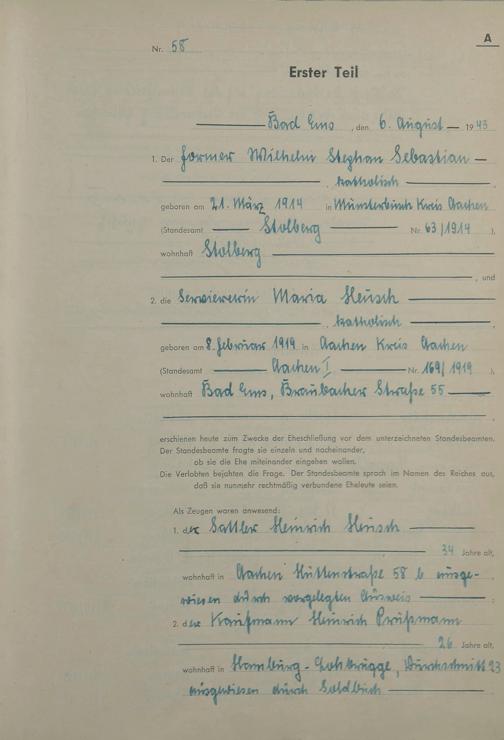 A
Nr. 58
Erster Teil
Bad Ems, den 6. August 1943
1. Der Former Wilhelm Stephan Sebastian
, katholisch
geboren am 21. März 1914 in Münsterbusch Kreis Aachen
(Standesamt Stolberg Nr. 63/1914 ),
wohnhaft Stolberg
, und
2. die Serviererin Maria Heusch
, katholisch
geboren am 8. Februar 1919 in Aachen Kreis Aachen
(Standesamt Aachen I Nr. 169/1919 ),
wohnhaft Bad Ems, Braubacher Straße 55
erschienen heute zum Zwecke der Eheschließung vor dem unterzeichneten Standesbeamten.
Der Standesbeamte fragte sie einzeln und nacheinander,
ob sie die Ehe miteinander eingehen wollen.
Die Verlobten bejahten die Frage. Der Standesbeamte sprach im Namen des Reiches aus,
daß sie nunmehr rechtmäßig verbundene Eheleute seien.
Als Zeugen waren anwesend:
1. der Sattler Heinrich Heusch
34 Jahre alt,
wohnhaft in Aachen Hüttenstraße 58 b ausge-
wiesen durch vorgelegten Ausweis ;
2. der Kaufmann Heinrich Prüßmann
26 Jahre alt,
wohnhaft in Hamburg-Lohbrügge, Durchschnitt 23
ausgewiesen durch Soldbuch .